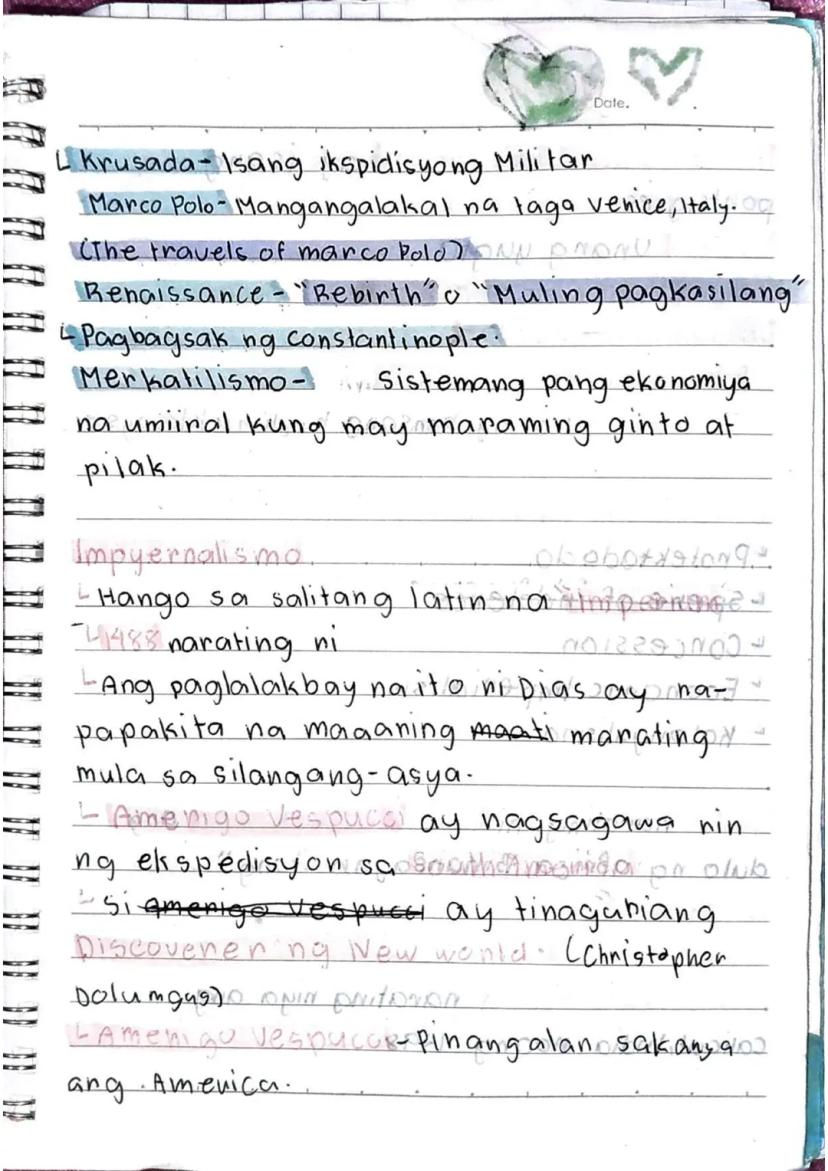 Date.
Krusada- Isang ikspidisyong Militar
Marco Polo- Mangangalakal na taga Venice, Italy.
(The travels of marco Polo)
Renaissance - "Rebirth" o "Muling pagkasilang"
Pagbagsak ng constantinople.
Merkatilismo- Sistemang pang ekonomiya
na umiiral kung may maraming ginto at
pilak.
Impyernalismo
Hango sa salitang latin na
1488 narating ni
Ang paglalakbay na ito ni Dias ay na-
papakita na maaaning maati marating
mula sa silangang-asya.
Amerigo Vespucci ay nagsagawa nin
ng ekspedisyon sa
Si amerigo vespucci ay tinaguriang
Discoverer ng New world. (Christopher
Dolumgus)
Amerigo Vespucci - Pinangalan sakanya
ang America.